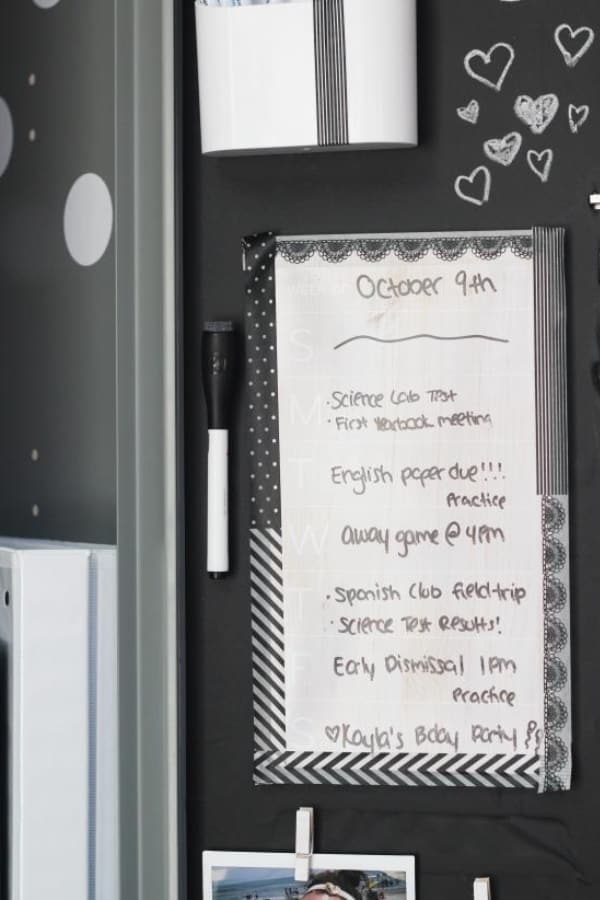 October 9th
S
M
· Science Lab Test
· First Yearbook meeting
T
English paper due!!!
Practice
W
away game @ 4pm
T
· Spanish Club field trip
· Science Test Results!
F
Early Dismissal 1pm
Practice
S
♡Kayla's Bday Party